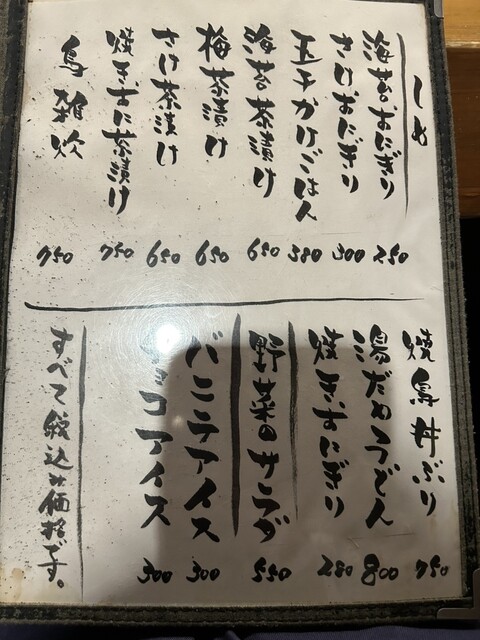 しめ
海苔おにぎり 250
さけおにぎり 300
玉子かけごはん 380
海苔茶漬け 650
梅茶漬け 650
さけ茶漬け 650
焼きおに茶漬け 750
鳥雑炊 750
焼鳥丼ぶり 750
湯だめうどん 800
焼きおにぎり 280
野菜のサラダ 550
バニラアイス 300
チョコアイス 300
すべて税込み価格です。